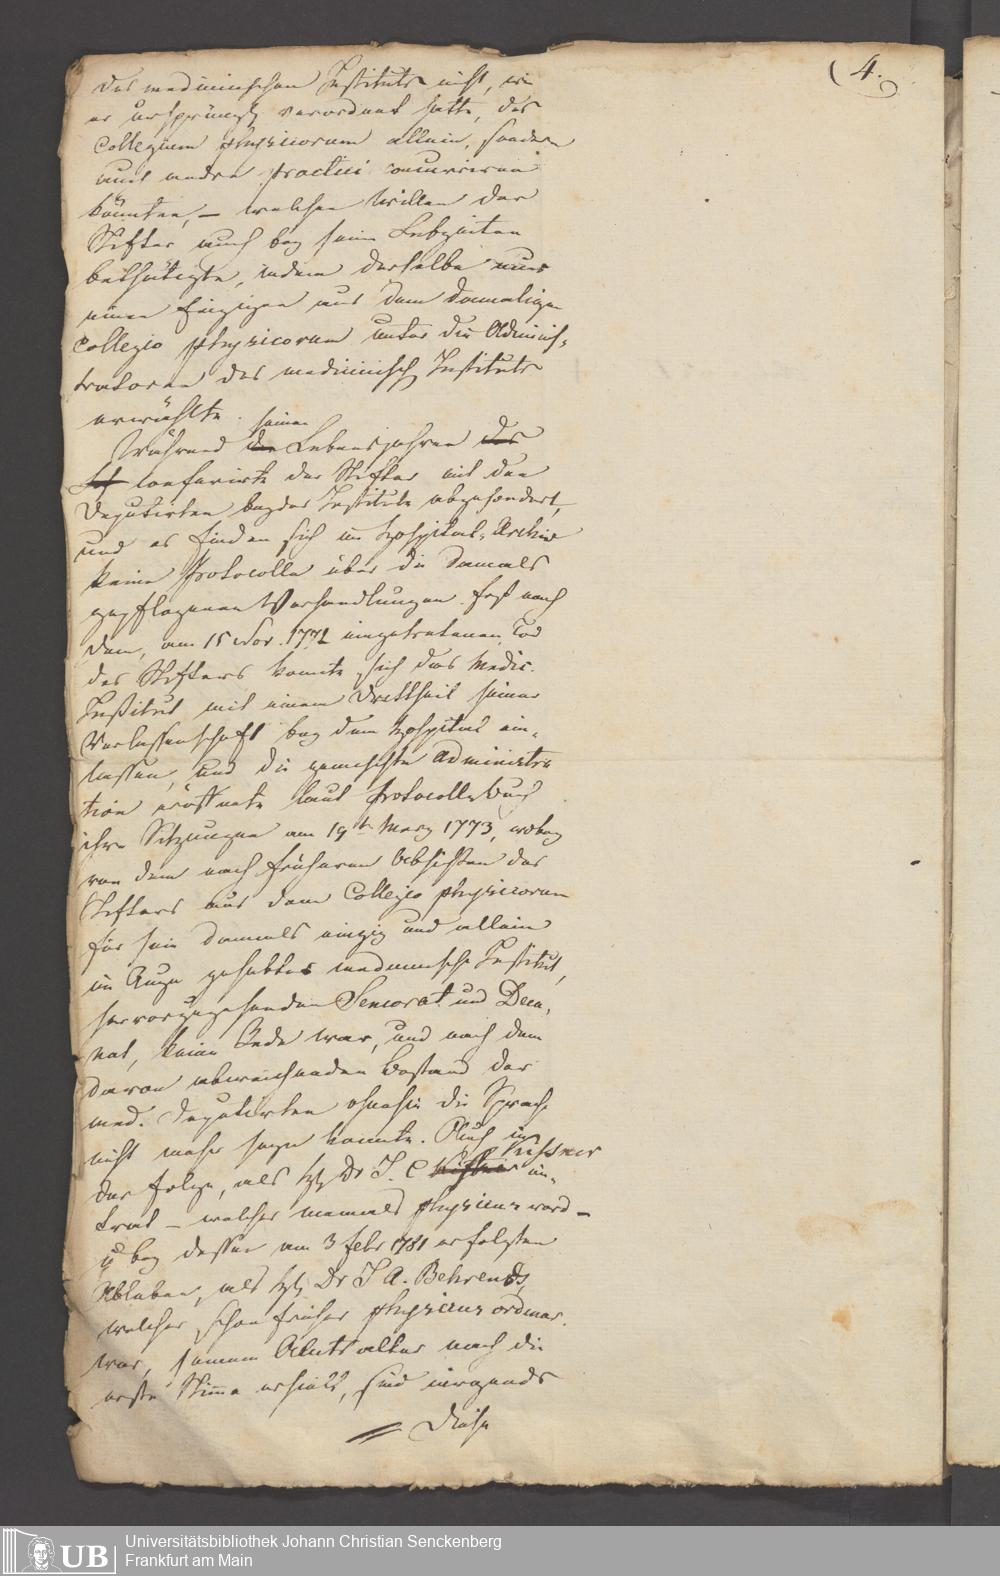 4.
des medicinischen Instituts nicht, wie
er ursprüngl verordnet hatte, das
Collegium physicorum allein, sondern
auch andre practici concurriren
könnten, – welchen Willen der
Stifter auch bey seinen Lebzeiten
bethätigte, indem derselbe nur
einen Einzigen aus dem damaligen
Collegio physicorum unter die Adminis-
tratoren des medicinisch Instituts
erwählte.
Während den seinen Lebensjahren des
St conferirte der Stifter mit den
Deputirten beyder Institute abgesondert,
und es finden sich im Hospital-Archiv
keine Protocolle über die damals
gepflogenen Verhandlungen. Erst nach
dem, am 15 Nov. 1772 eingetretenen Tod
des Stifters konnte sich das medic.
Institut mit einem Drittheil seiner
Verlassenschaft bey dem Hospital ein-
lassen, und die gemischte Administra
tion eröffnete laut Protocollsbuch
ihre Sitzungen am 19t Merz 1773, wobey
von dem nach früheren Absichten des
Stifters aus dem Collegio physicorum
für sein damals einzig und allein
im Auge gehabtes medicinische Institut,
hervorzugehenden Seniorat und Deca-
nat, keine Rede war, und nach dem
davon abweichenden Bestand der
med. Deputirten ohnehin die Sprache
nicht mehr seyn konnte. Auch in
der Folge, als H Dr J. C Kissner ein-
trat – welcher niemals physicus ward –
u bey dessen am 3 Febr 1781 erfolgten
Ableben, als H Dr J A. Behrends,
welcher schon früher physicus ordinar.
war, seinem Amtsalter nach die
erste Stimme erhielt, sind nirgends
Diese
Universitätsbibliothek Johann Christian Senckenberg
Frankfurt am Main
UB